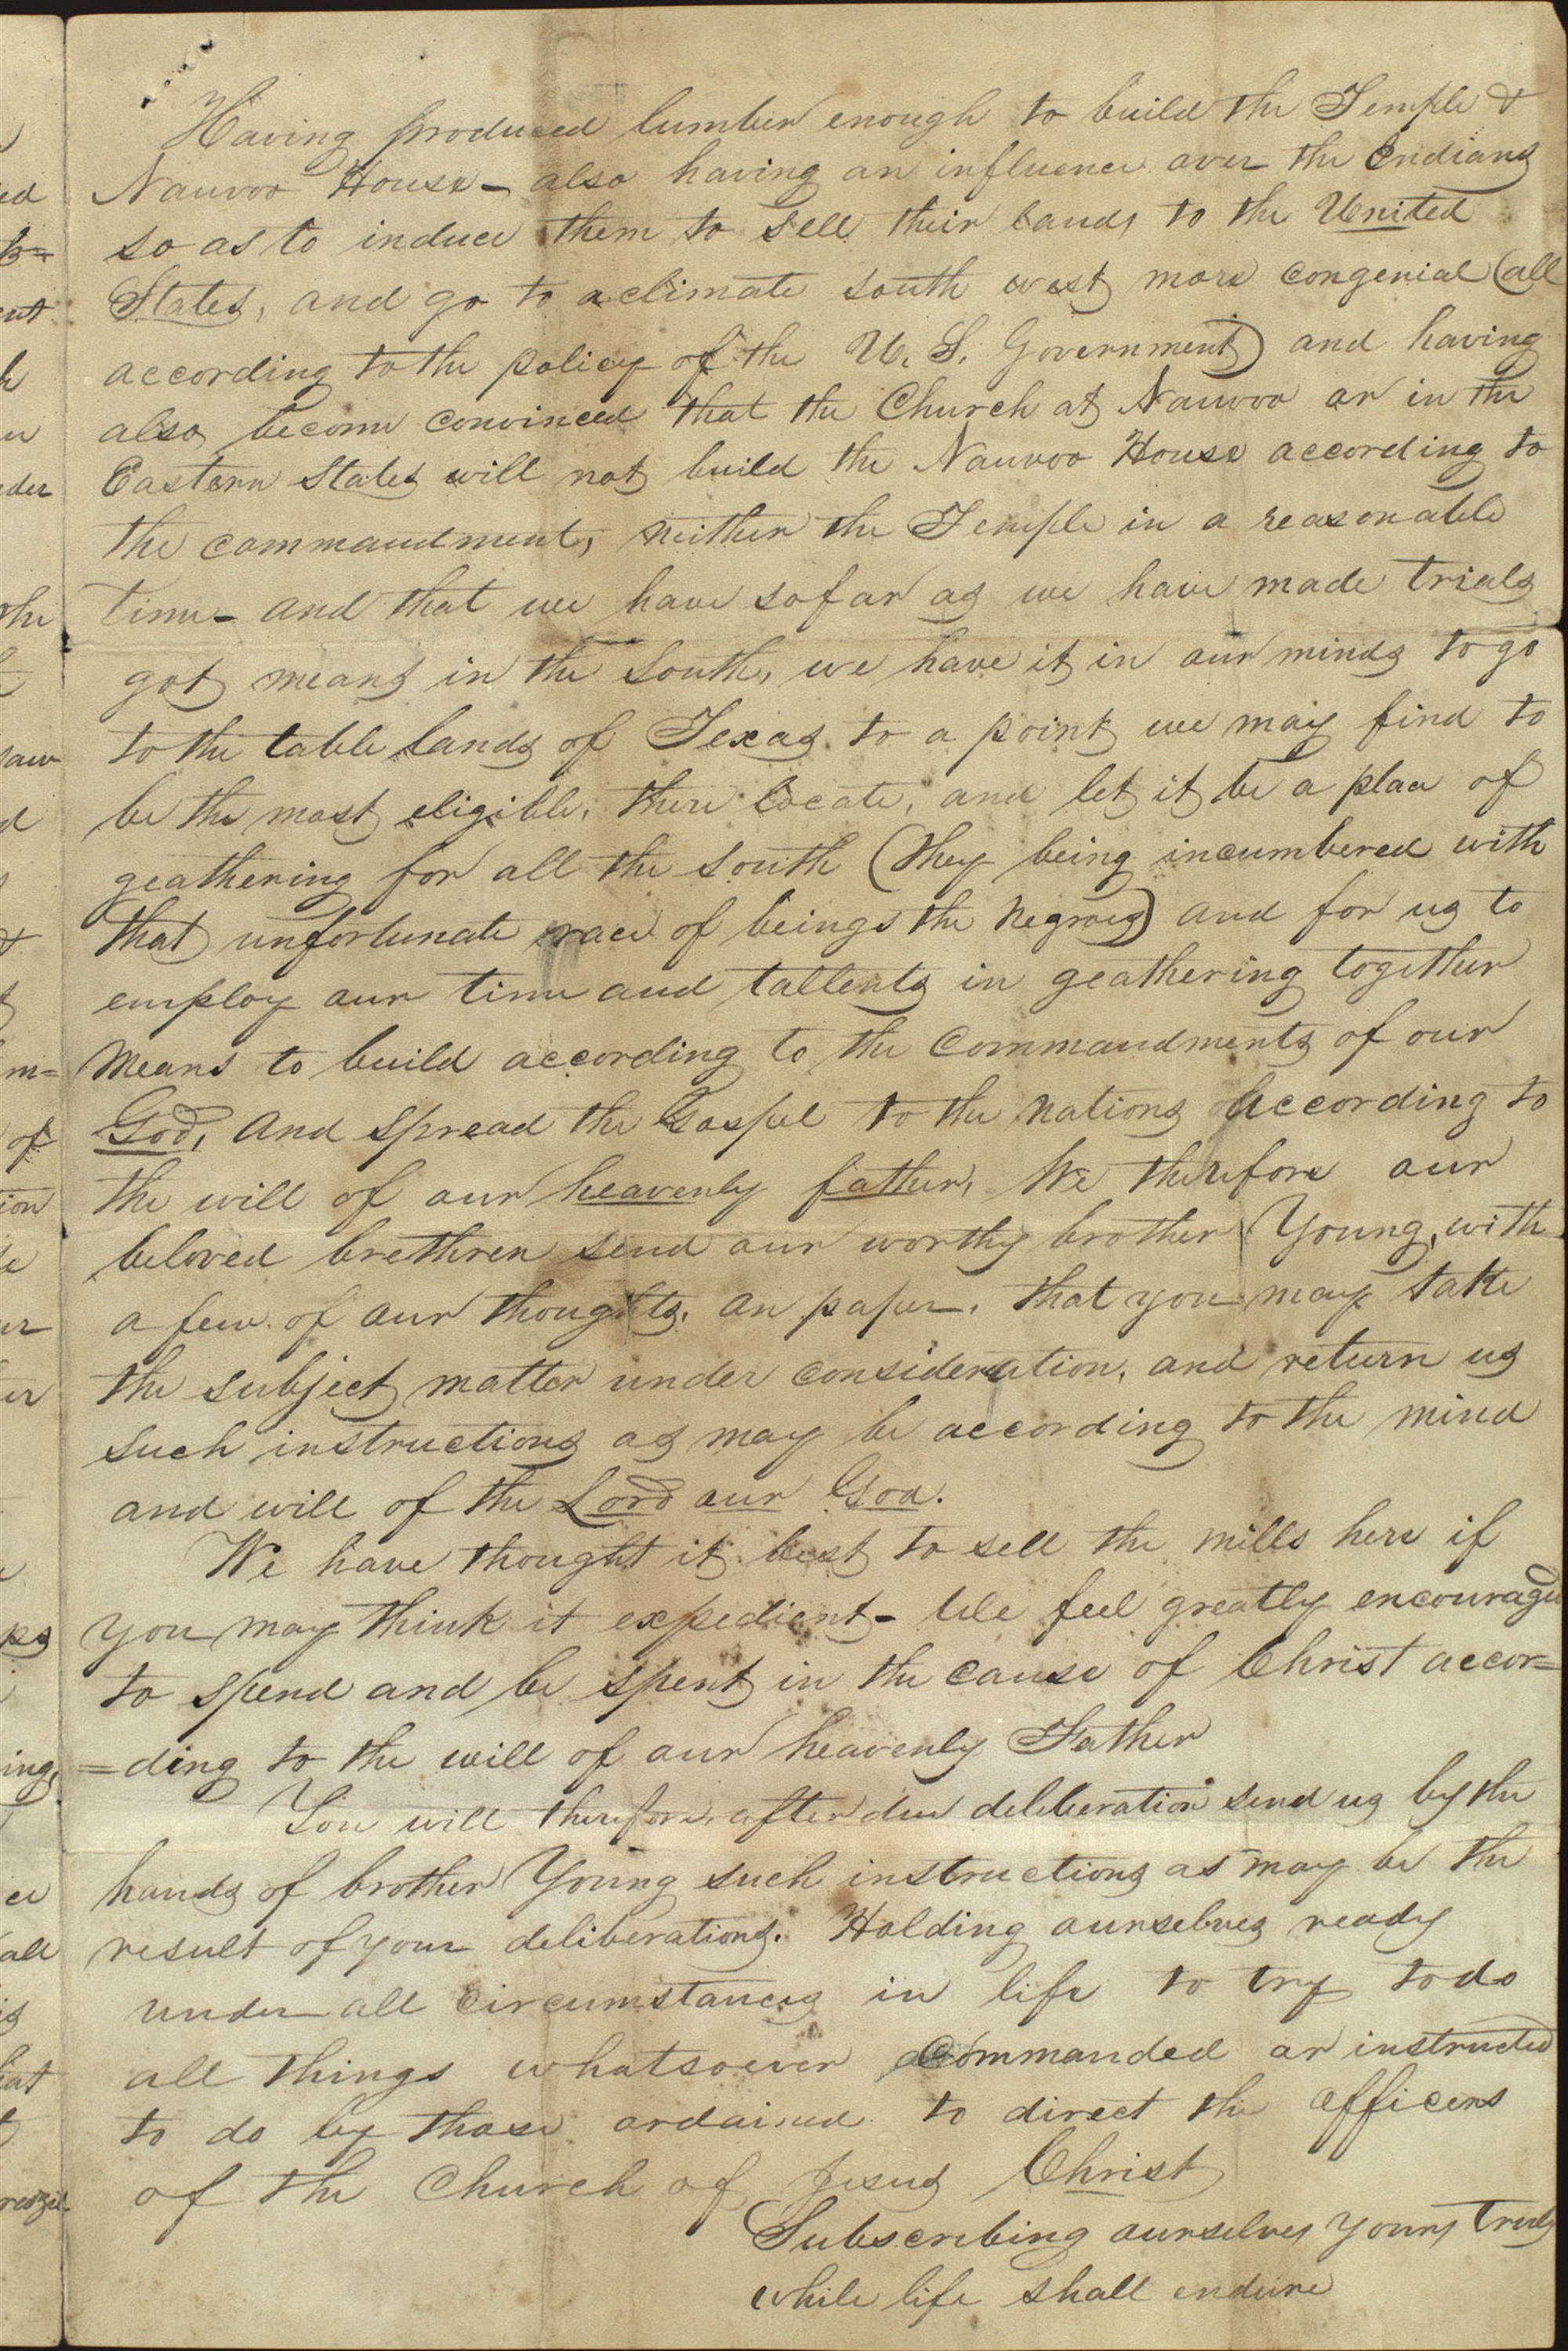 Having produced lumber enough to build the Temple &
Nauvoo House - also having an influence over the Indians
so as to induce them to sell their lands to the United
States, and go to a climate south west more congenial (all
according to the policy of the U. S. Government) and having
also become convinced that the Church at Nauvoo or in the
Eastern States will not build the Nauvoo House according to
the commandment, neither the Temple in a reasonable
time - and that we have so far as we have made trials
got means in the South, we have it in our minds to go
to the table lands of Texas, to a point we may find to
be the most eligible, there locate, and let it be a place of
geathering for all the South (they being incumbered with
that unfortunate race of beings the negroes) and for us to
employ our time and tallents in geathering together
means to build according to the commandments of our
God, and spread the Gospel to the nations according to
the will of our heavenly father, We therefore our
beloved brethren send our worthy brother Young, with
a few of our thoughts, on paper, that you may take
the subject matter under consideration, and return us
such instructions as may be according to the mind
and will of the Lord our God.
We have thought it best to sell the mills here if
you may think it expedient - We feel greatly encouraged
to spend and be spent in the cause of Christ accor=
=ding to the will of our heavenly Father
You will therefore, after due deliberation send us by the
hands of brother Young such instructions as may be the
result of your deliberations. Holding ourselves ready
under all circumstances in life to try to do
all things whatsoever commanded or instructed
to do by those ordained to direct the officers
of the Church of Jesus Christ
Subscribing ourselves yours truly
while life shall endure